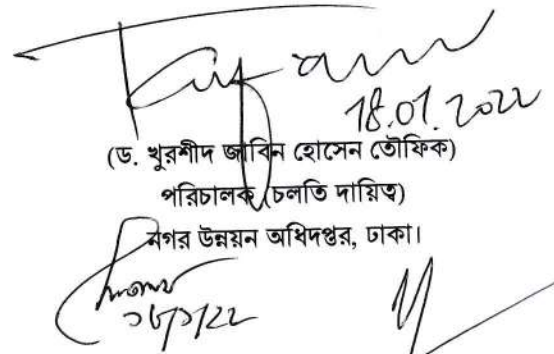 18.01.2022
(ড. খুরশীদ জাবিন হোসেন তৌফিক)
পরিচালক (চলতি দায়িত্ব)
নগর উন্নয়ন অধিদপ্তর, ঢাকা।